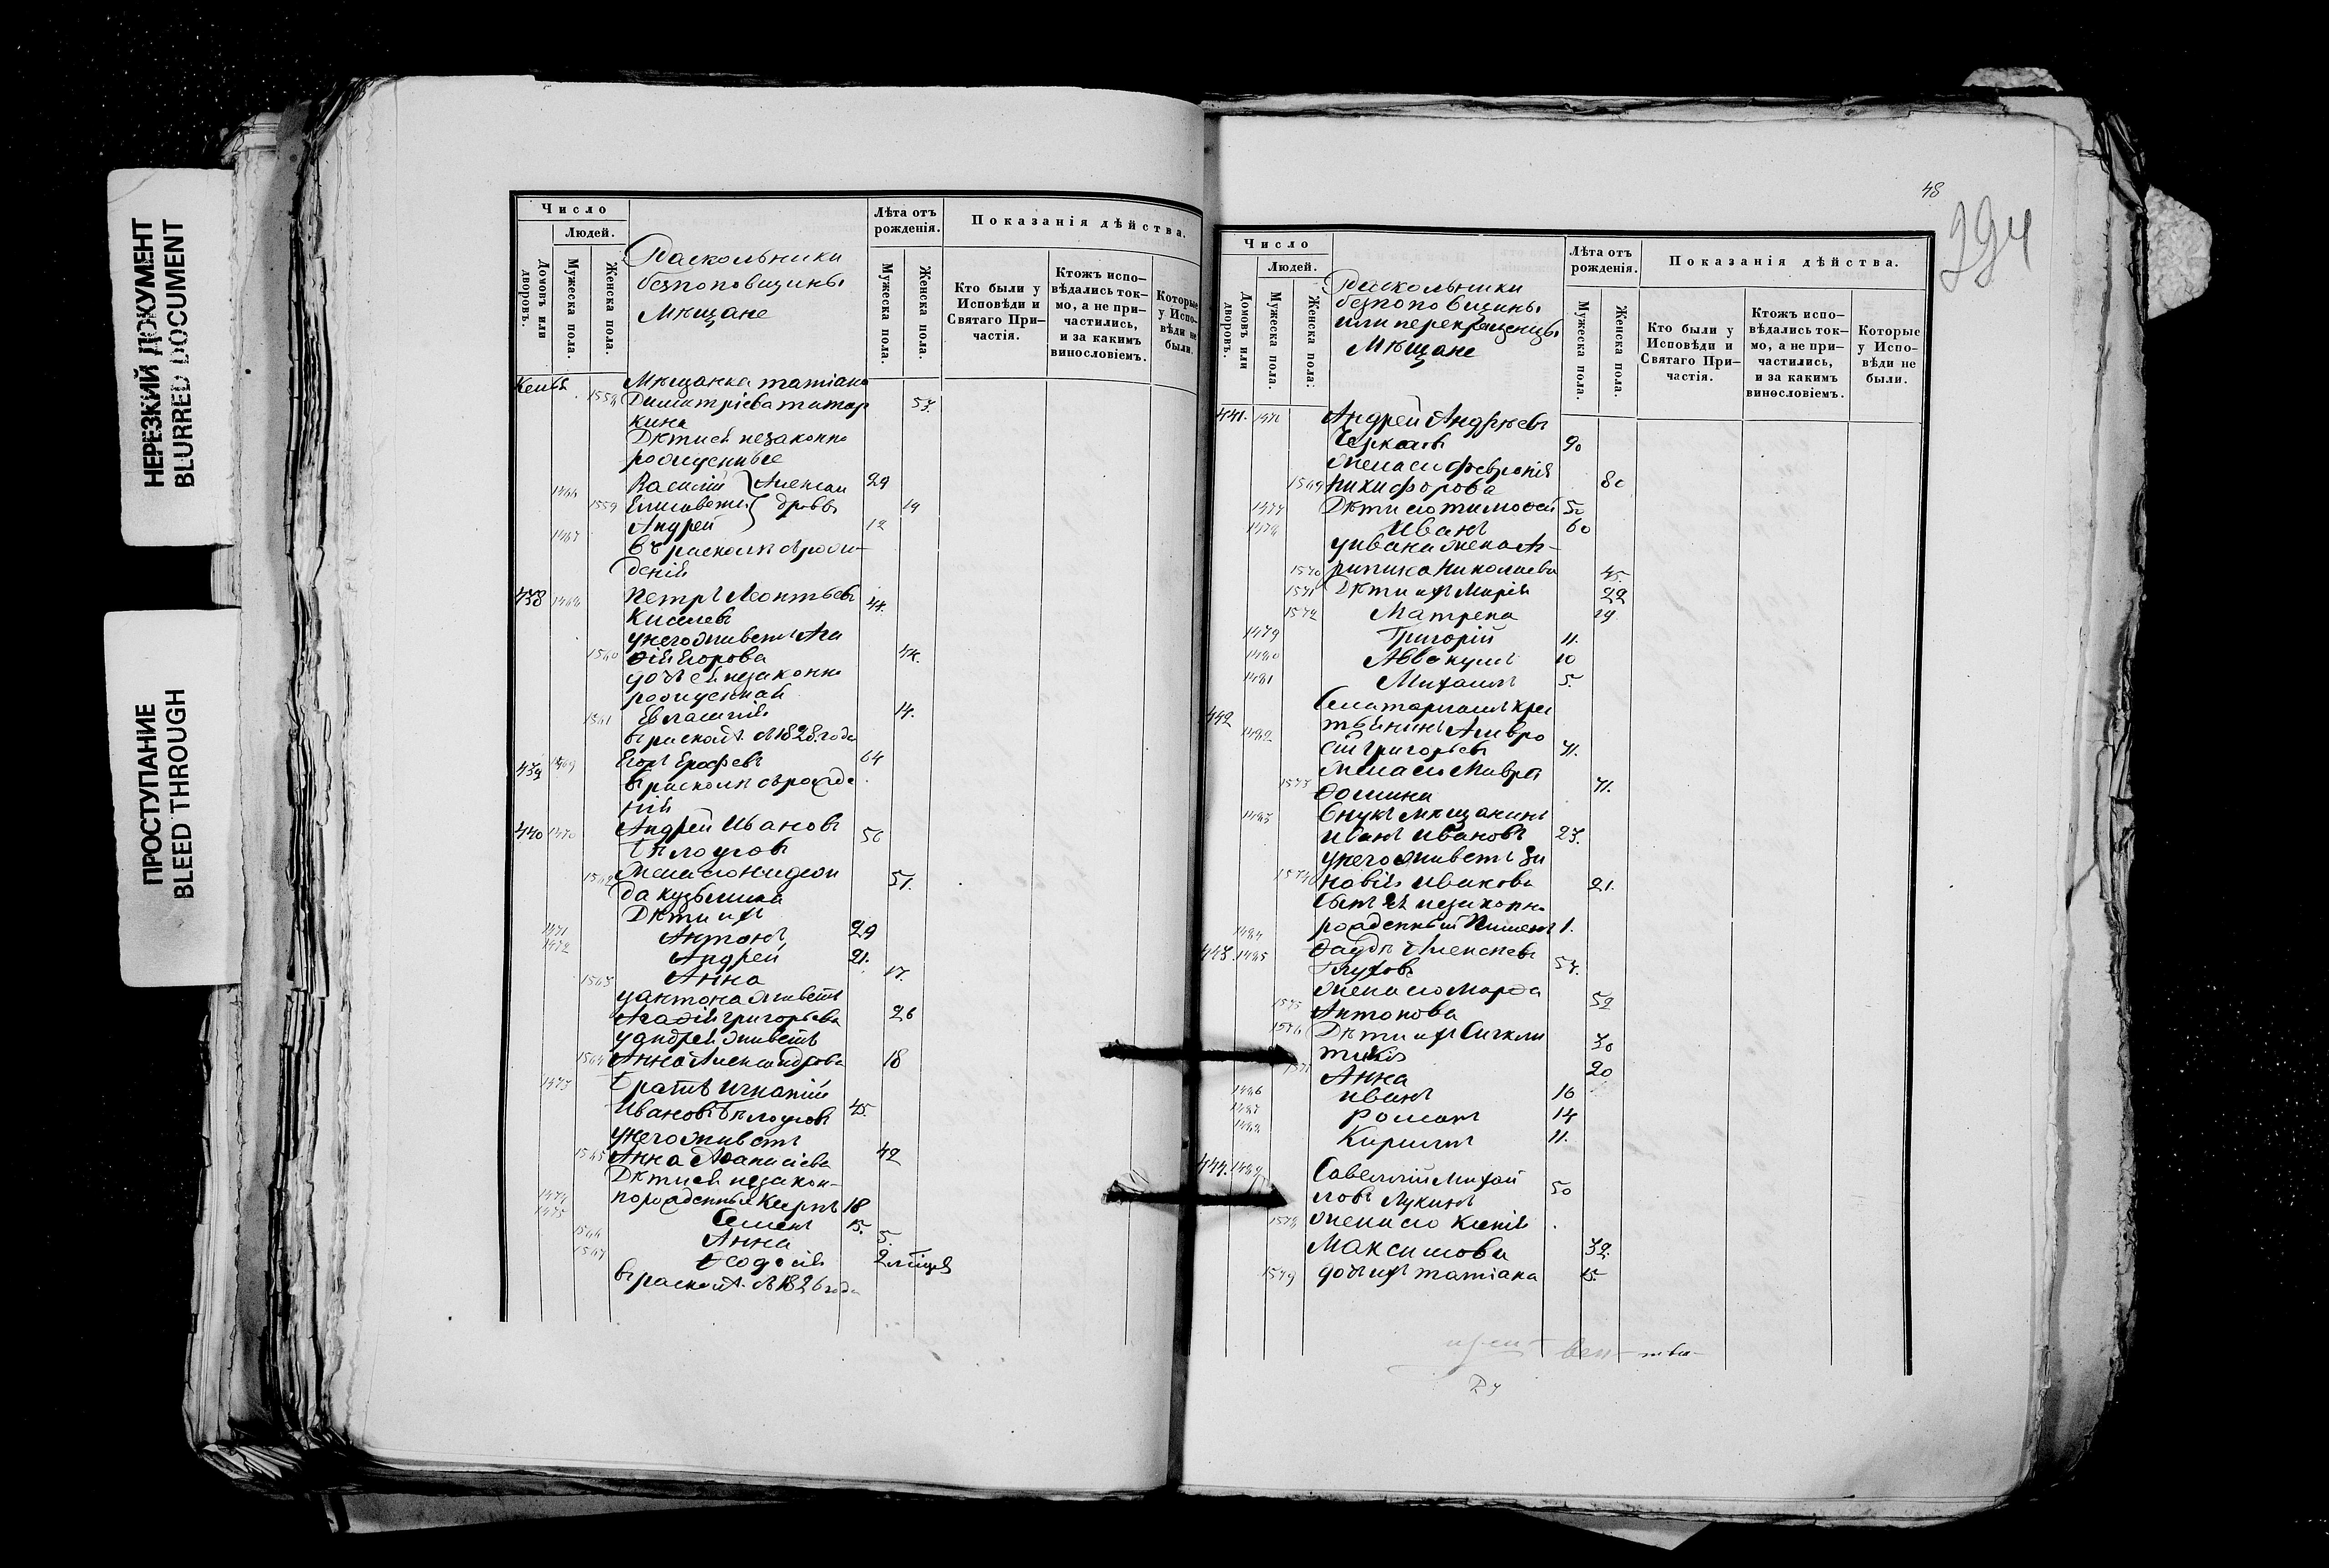 НЕРЕЗКИЙ ДОКУМЕНТ
BLURRED DOCUMENT
ПРОСТУПАНИЕ
BLEED THROUGH
Число
Людей.
Домовъ или дворовъ.
Мужеска пола.
Женска пола.
Раскольники
безпоповщины
Мѣщане
Лѣта отъ рожденія.
Мужеска пола.
Женска пола.
Показанія дѣйства.
Кто были у Исповѣди и Святаго Причастія.
Ктожъ исповѣдались токмо, а не причастились, и за какимъ винословіемъ.
Которые у Исповѣди не были.
Мѣщанка татіана
1558 Димитріева татар 53.
кина
Дѣти ей незаконно
рожденные
1466 Василій 29
1559 Елисаветъ 19
Андрей 12
1467 въ расколѣ съ рож-
деній
438 1468 Петръ Леонтьевъ 44.
Киселевъ
у него живетъ Ага
1560 ѳія Егорова 44.
дочь ей незаконно
рожденная
1561 14.
въ раскол. съ 1828 года
439 1469 Егоръ Ерофеевъ 64
въ расколѣ съ рожде
нія
440 1470 Андрей Ивановъ 56
Бѣлоусовъ
1562 51.
да кузьмина
Дѣти ихъ
1471 Антонъ 29
1472 Андрей 21.
1563 Анна 17.
у антона живетъ
Агаѳія григорьева 26
у андрея живетъ
1564 Анна Александрова 18
1473 Братъ Игнатій
Ивановъ Бѣлоусовъ 45.
у него живетъ
1565 Анна Аѳанасіева 42
Дѣти ей незакон-
1474 норожденные Карпъ 18
1475 Семенъ 15.
1566 Анна 5.
1567 Ѳеодосія 2
въ раскол. съ 1826 года
48
294
Число
Людей.
Домовъ или дворовъ.
Мужеска пола.
Женска пола.
Раскольники
безпоповщины
или перекрещенцы
Мѣщане
Лѣта отъ рожденія.
Мужеска пола.
Женска пола.
Показанія дѣйства.
Кто были у Исповѣди и Святаго Причастія.
Ктожъ исповѣдались токмо, а не причастились, и за какимъ винословіемъ.
Которые у Исповѣди не были.
441. 1476 Андрей Андреевъ
90
жена его Февронія
1569 никифорова 80
1477 Дѣти его тимоѳей 50
1478 Иванъ 60
у ивана жена Аг-
1570 рипина Николаева 45.
1571 Дѣти ихъ Марія 22
1572 Матрена 19
1479 Григорій 11.
1480 Аввакумъ 10
1481 Михаилъ 5.
442
1482 тьянинъ Амвро
сій григорьевъ 71.
жена его Мавра
1573 Ѳомина 71.
1483 Внукъ мѣщанинъ
Иванъ Ивановъ 23.
у него живетъ Зи
1574 новія Иванова 21.
сынъ ея незаконно
1484 рожденный Пименъ 1.
443. 1485 Алексѣевъ
Глуховъ 54.
жена его Марѳа
1575 Антонова 52
1576 Дѣти ихъ Сикли
тикія 30
Анна 20
1486 Иванъ 16
1487 Романъ 14
1488 Кириллъ 11.
444. 1489 Савеллій Михай
ловъ Лукинъ 50
1578 жена его Ксенія
Максимова 32.
1579 дочь ихъ татіана 15.